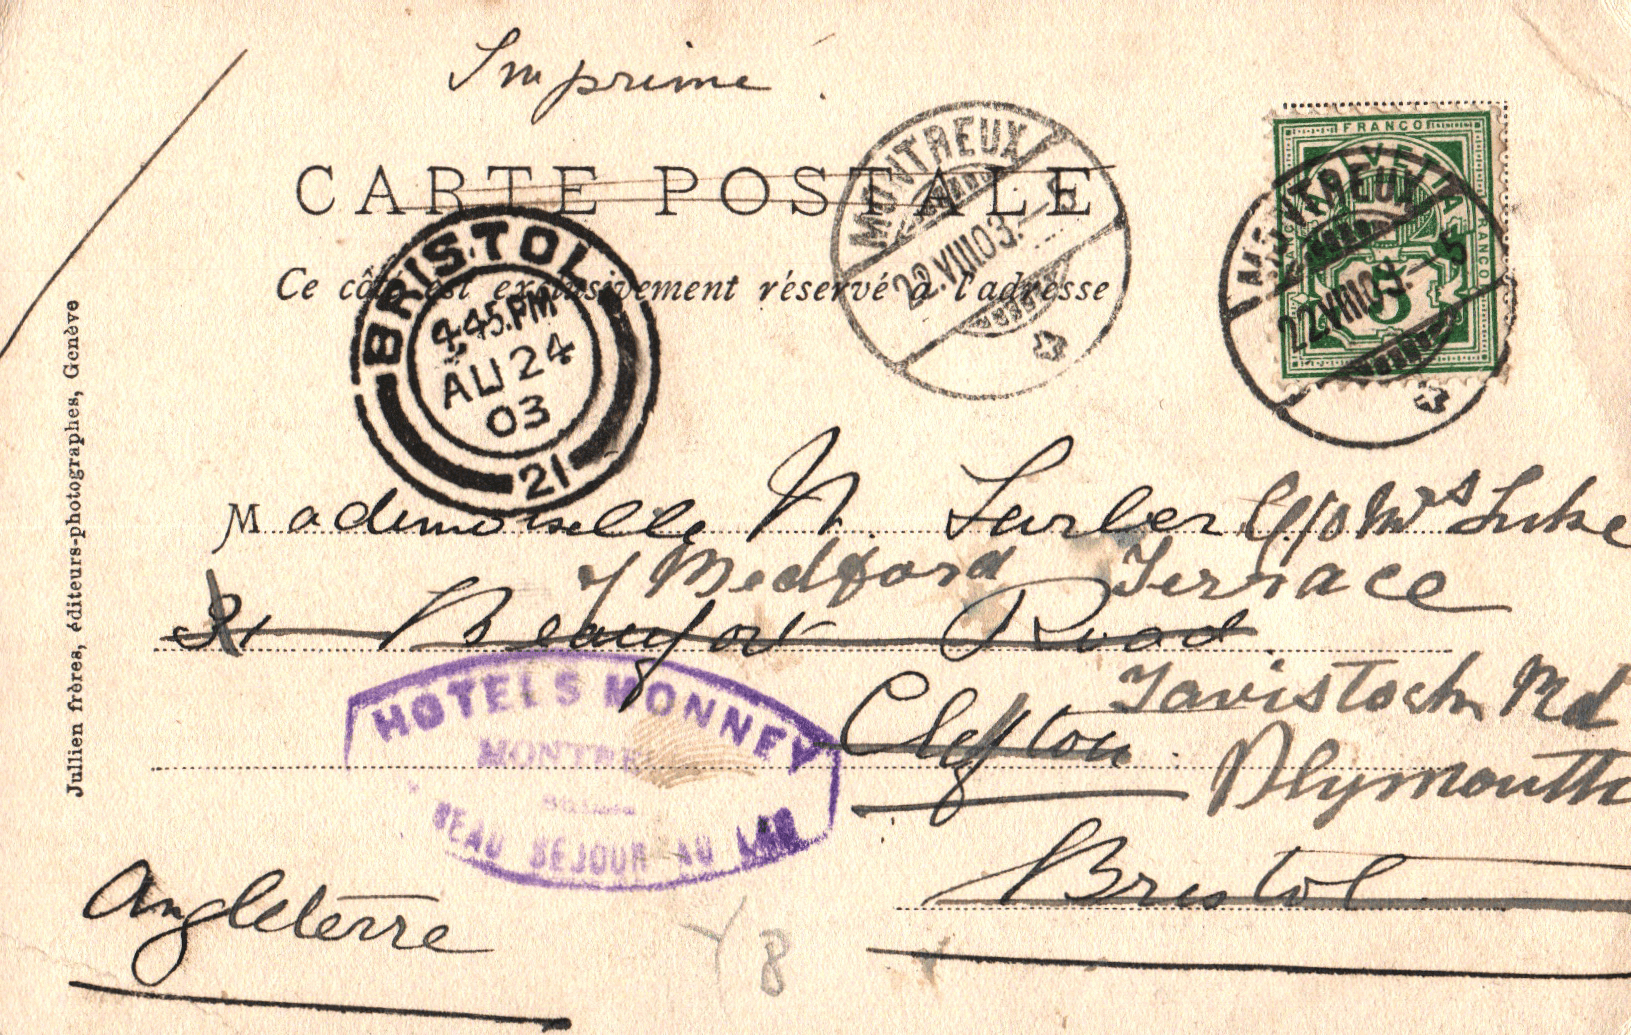 Imprimé
CARTE POSTALE
Ce côté est exclusivement réservé à l'adresse
MONTREUX
22.VIII03.—5
FRANCO
HELVETIA
FRANCO
5
MONTREUX
22VIII03.—5
BRISTOL
4.45.PM
AU 24
03
21
Jullien frères, éditeurs-photographes, Genève
Mademoiselle N. C/o Mrs Luke
7 Medford Terrace
31 Beaufort Road
Tavistock Rd
Clifton
Plymouth
HOTELS MONNEY
MONTRE
BEAU SEJOUR AU LAC
Bristol
Angleterre
8